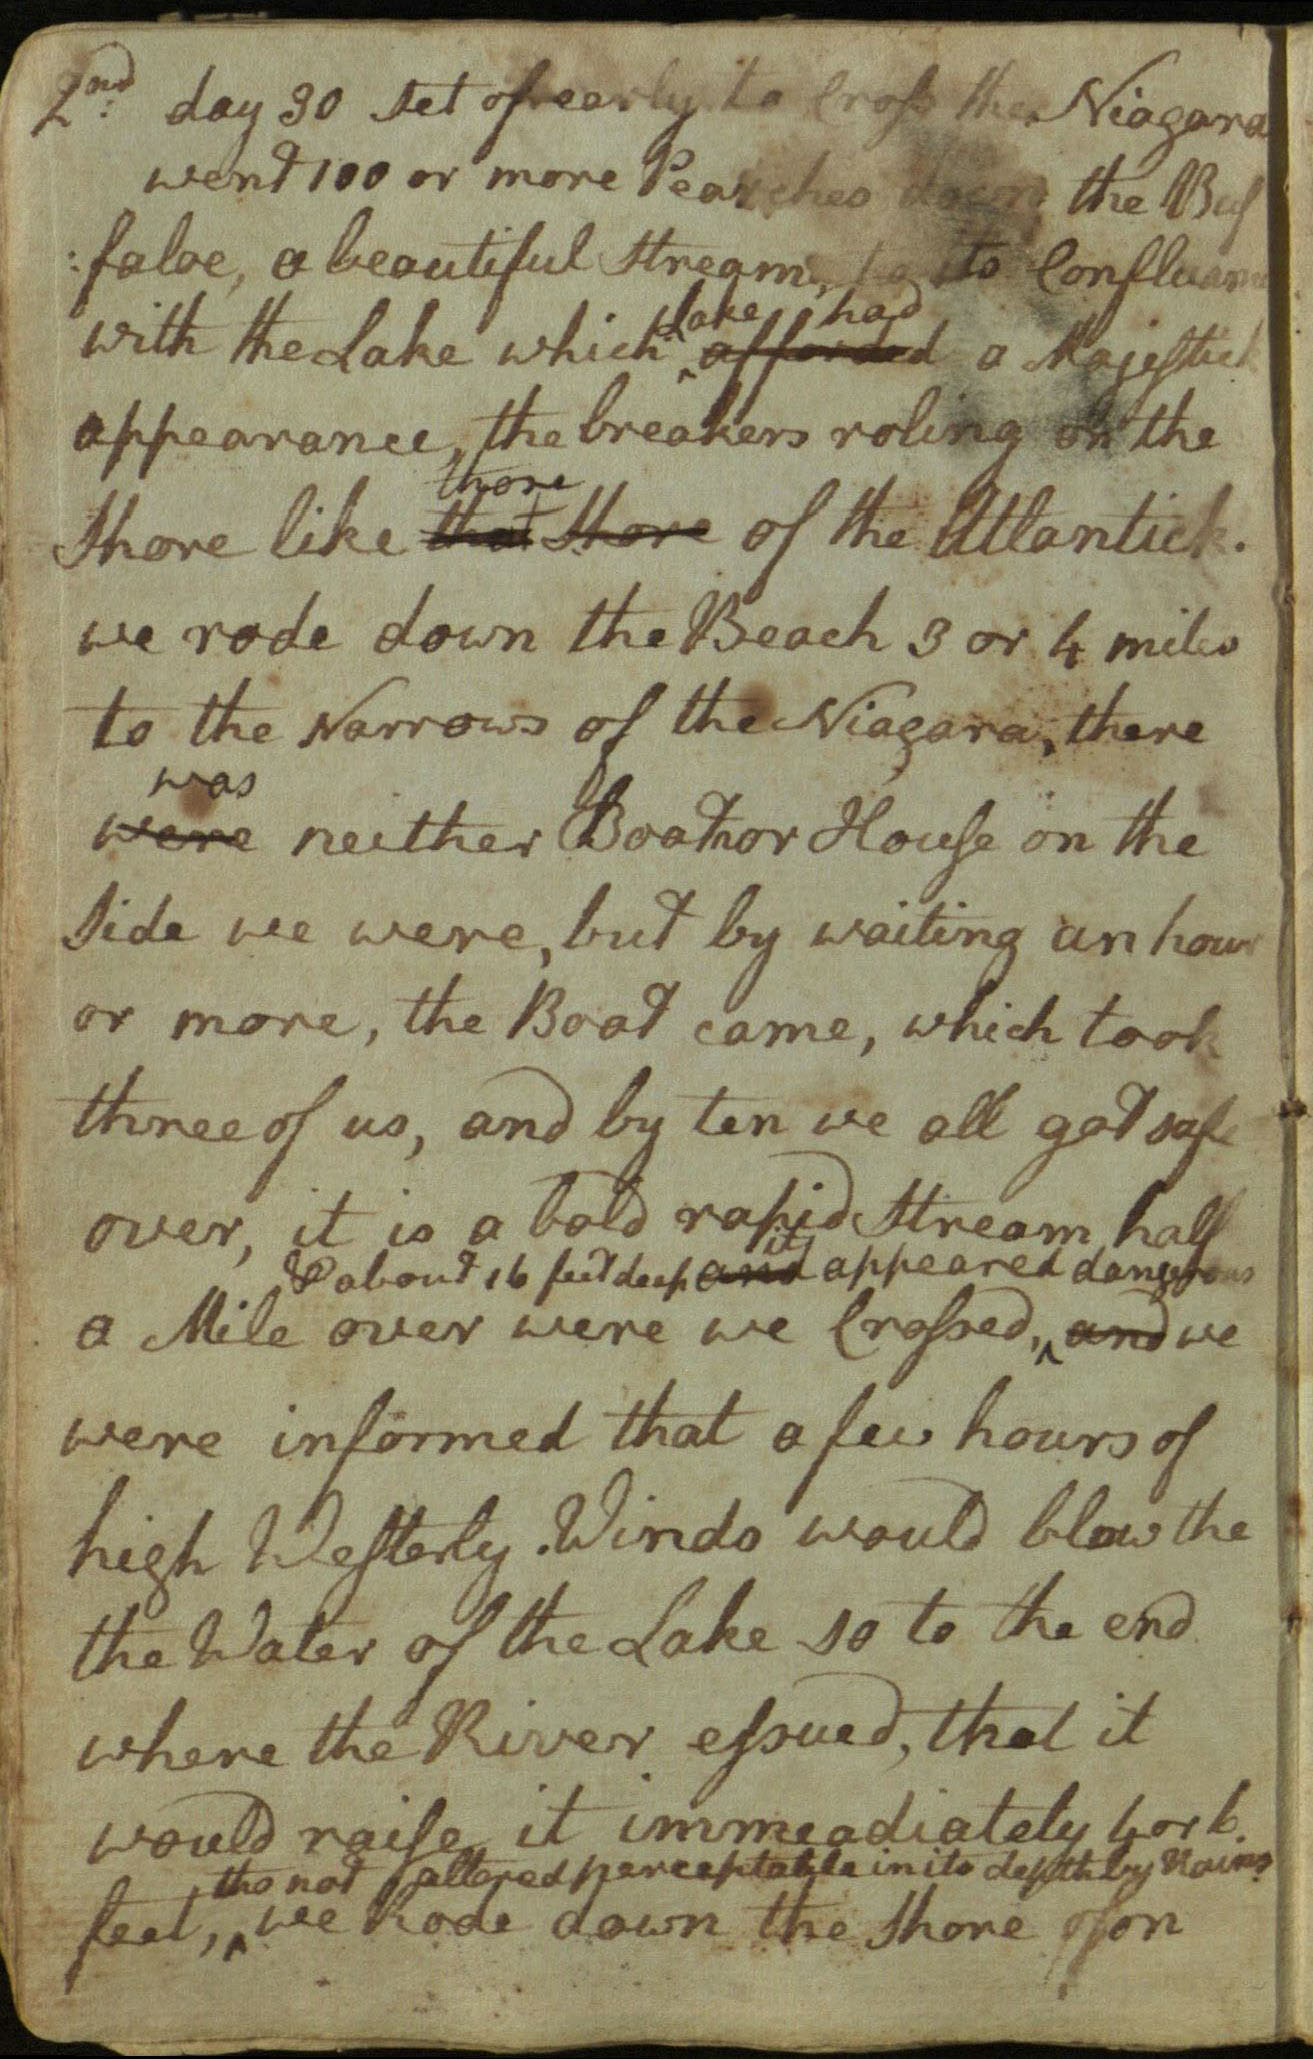 2nd. day 30 set of early to Cross the Niagara
went 100 or more Pearches down the Buf
:faloe, a beautiful Stream, to its Confluance
lake had
with the Lake which afforded a Majestick
appearance, the breakers roling on the
those
Shore like that Shore of the Atlantick.
we rode down the Beach 3 or 4 miles
to the Narrows of the Niagara, there
was
were neither Boat nor House on the
side we were, but by waiting an hour
or more, the Boat came, which took
three of us, and by ten we all got safe
over, it is a bold rapid Stream half
& about 16 feet deep and it appeared dangerous
a Mile over were we Crossed, and we
were informed that a few hours of
high Westerly Winds would blow the
the Water of the Lake so to the end
where the River essued, that it
would raise it immeadiately 4 or 6
tho not altered perceptable in its depth by Rains
feet, we Rode down the Shore of on